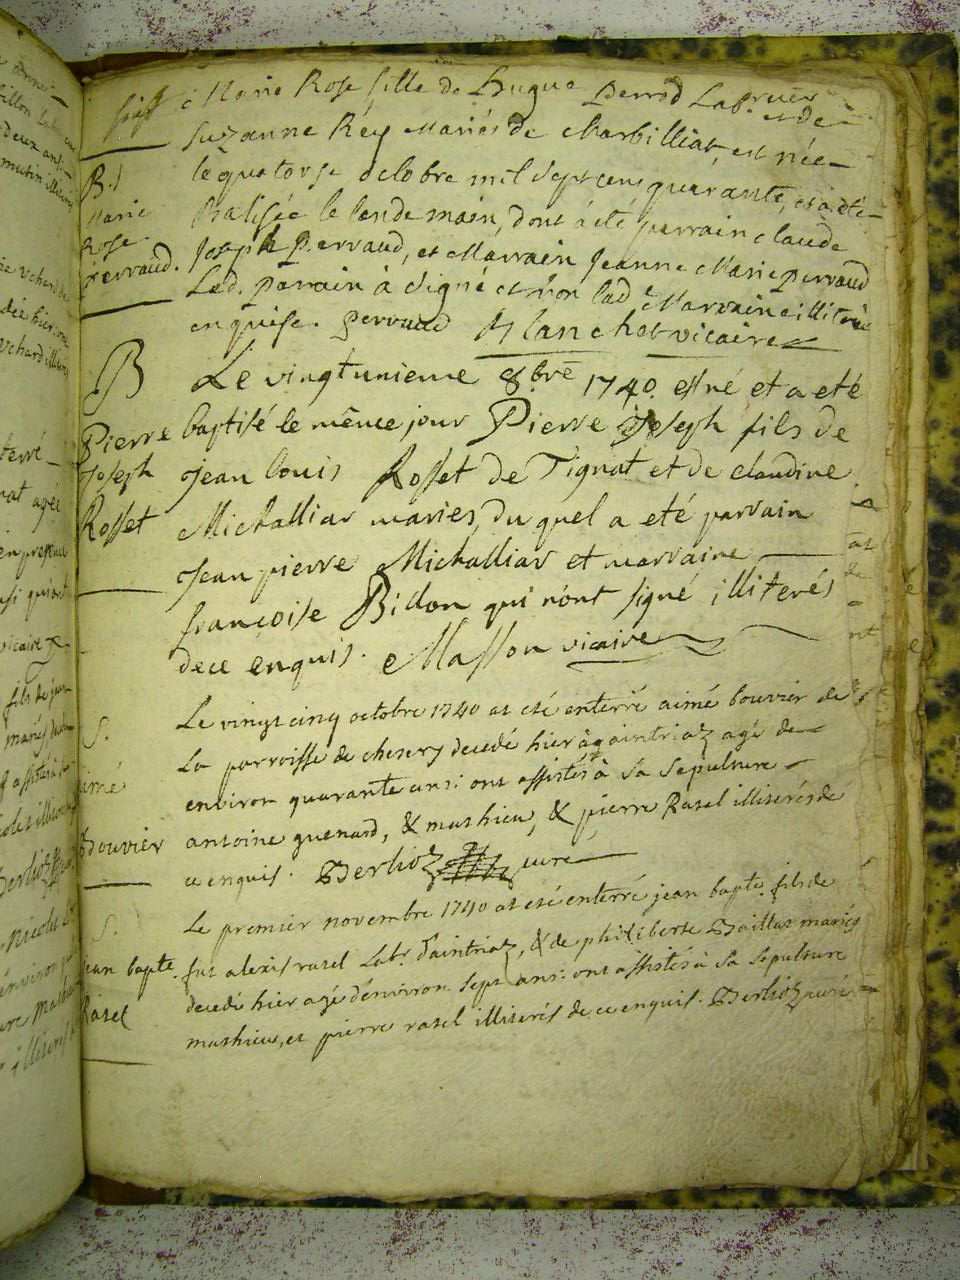 Marie Rose fille de Hugue Perrod Labr
et de
Suzanne Réy mariés de Charbilliat, est née
B.
le quatorse octobre mil Sept cens quarante, et a été
Marie
Batisée le lendemain, dont à été parrain claude
Rose
Joseph Pervaud, et Marrain Jeanne Marie Pervaud
Pervaud.
Led. Parrain à signé et non lad Marraine illitrée
enquise. Pervaud Blanchet vicaire
B
Le vingtunieme 8.bre 1740. est né et a eté
Pierre
baptisé le même jour Pierre Joseph fils de
Joseph
Jean louis Rosset de Tignat et de claudine
Rosset
Michalliar maries, du quel a eté parrain
Jean pierre Michalliar et marraine
françoise Billon qui n'ont signé illiterés
dece enquis. Masson vicaire
S.
Le vingt cinq octobre 1740 at eté enterré aimé bouvier de
aimé
La parroisse de chesery decedé hier à daintriaz agé de
environ quarante ans: ont assistés à Sa Sepulture
Bouvier
antoine guenard, & mathieu, & pierre Rasel illiterés de
ce enquis. Berlioz curé
S.
Le premier novembre 1740 at eté enterré jean bapte. fils de
jean bapte.
fut alexis rasel Labr. daintriaz, & de philiberte Baillat mariés
Rasel
decedé hier agé denviron sept ans: ont assistés à Sa Sepulture
mathieu, et pierre rasel illiterés de ce enquis. Berlioz curé